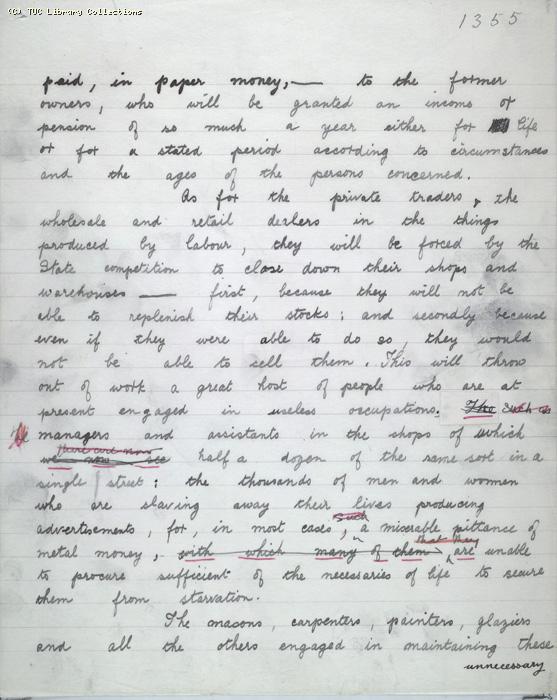 (c) TUC Library Collections
1355
paid, in paper money, — to the former
owners, who will be granted an income or
pension of so much a year either for life
or for a stated period according to circumstances
and the ages of the persons concerned.
As for the private traders, the
wholesale and retail dealers in the things
produced by labour, they will be forced by the
State competition to close down their shops and
warehouses — first, because they will not be
able to replenish their stocks; and secondly because
even if they were able to do so, they would
not be able to sell them. This will throw
out of work a great host of people who are at
present engaged in useless occupations. The Such as
managers and assistants in the shops of which
there are now
we now see half a dozen of the same sort in a
single street: the thousands of men and women
who are slaving away their lives producing
such
advertisements, for, in most cases, a miserable pittance of
that they
metal money, with which many of them are unable
to procure sufficient of the necessaries of life to secure
them from starvation.
The masons, carpenters, painters, glaziers
and all the others engaged in maintaining these
unnecessary